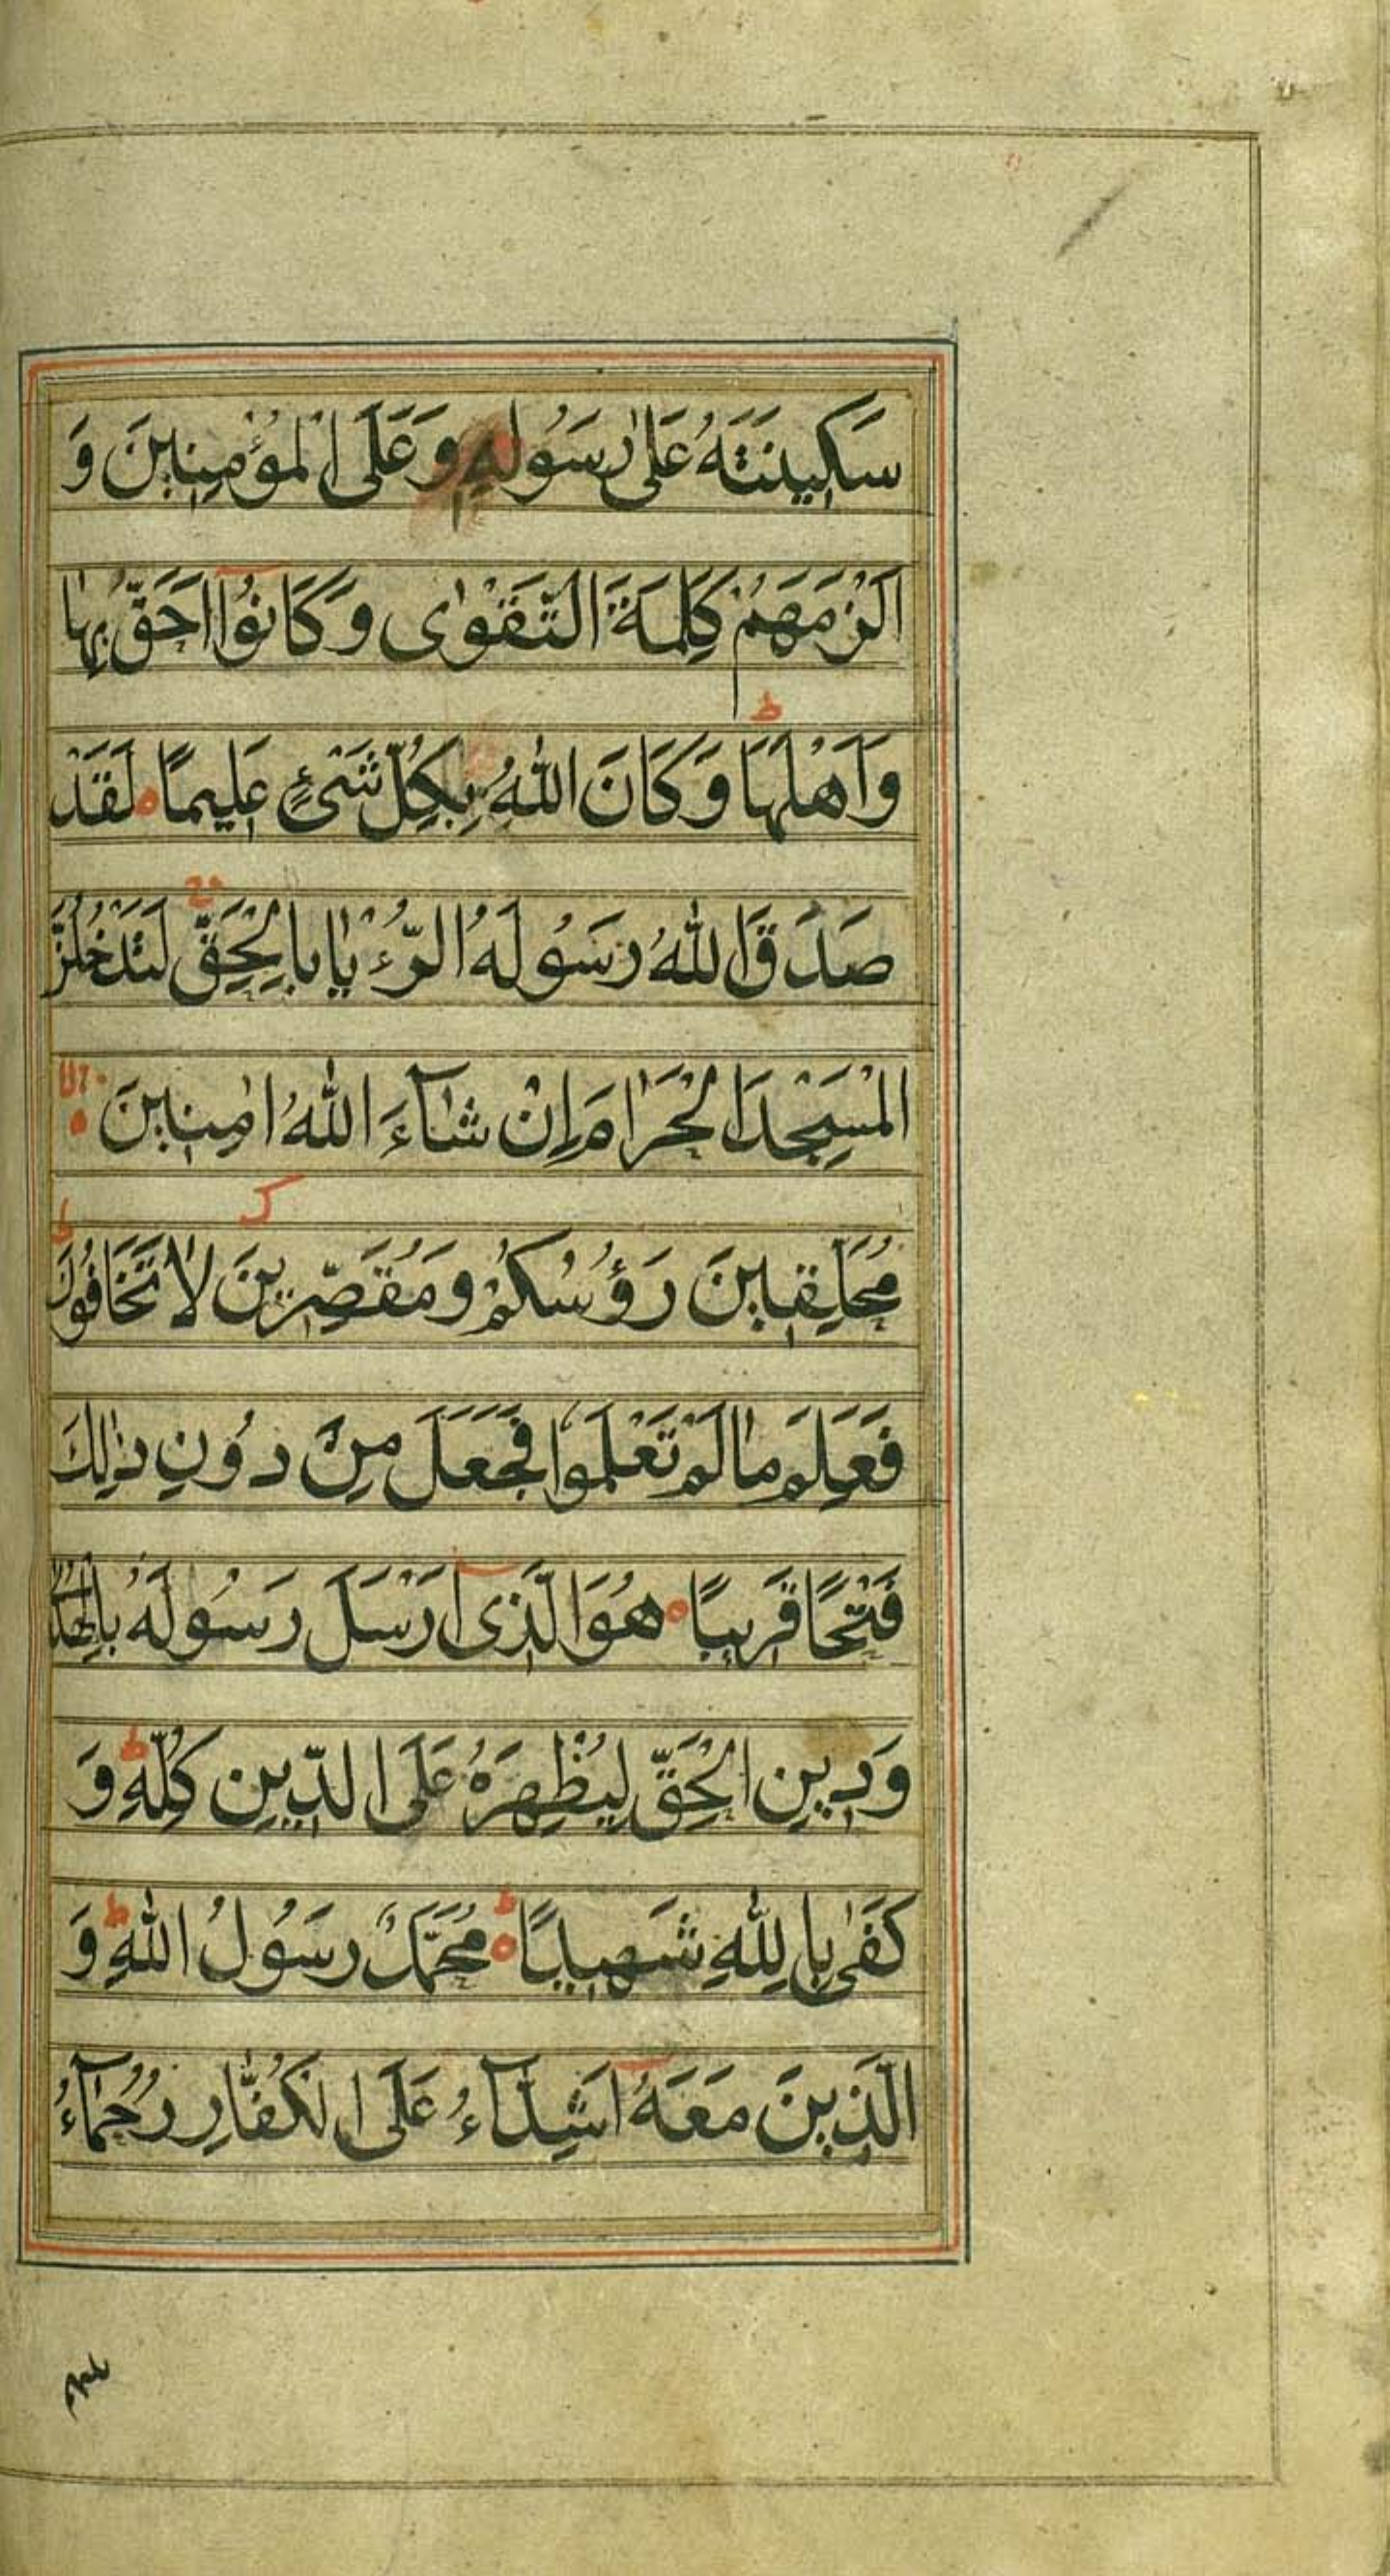 سَكِينَتَهُ عَلىٰ رَسُولِهِ وَعَلَى الْمُؤْمِنِينَ وَ
اَلْزَمَهُمْ كَلِمَةَ التَّقْوٰى وَكَانُوْا اَحَقَّ بِهَا
وَاَهْلَهَا ط وَكَانَ اللّٰهُ بِكُلِّ شَىْءٍ عَلِيمًا لَقَدْ
صَدَقَ اللّٰهُ رَسُولَهُ الرُّءْيَا بِالْحَقِّ لَتَدْخُلُنَّ
الْمَسْجِدَ الْحَرَامَ اِنْ شَآءَ اللّٰهُ اٰمِنِينَ لا
مُحَلِّقِينَ رَؤُسَكُمْ وَمُقَصِّرِينَ لَا تَخَافُونَ ط
فَعَلِمَ مَا لَمْ تَعْلَمُوا فَجَعَلَ مِنْ دُونِ ذٰلِكَ
فَتْحًا قَرِيبًا هُوَ الَّذِى اَرْسَلَ رَسُولَهُ بِالْهُدٰى
وَدِينِ الْحَقِّ لِيُظْهِرَهُ عَلَى الدِّينِ كُلِّهِ ط وَ
كَفٰى بِاللّٰهِ شَهِيدًا ط مُحَمَّدٌ رَسُولُ اللّٰهِ ط وَ
الَّذِينَ مَعَهُ اَشِدَّآءُ عَلَى الْكُفَّارِ رُحَمَآءُ